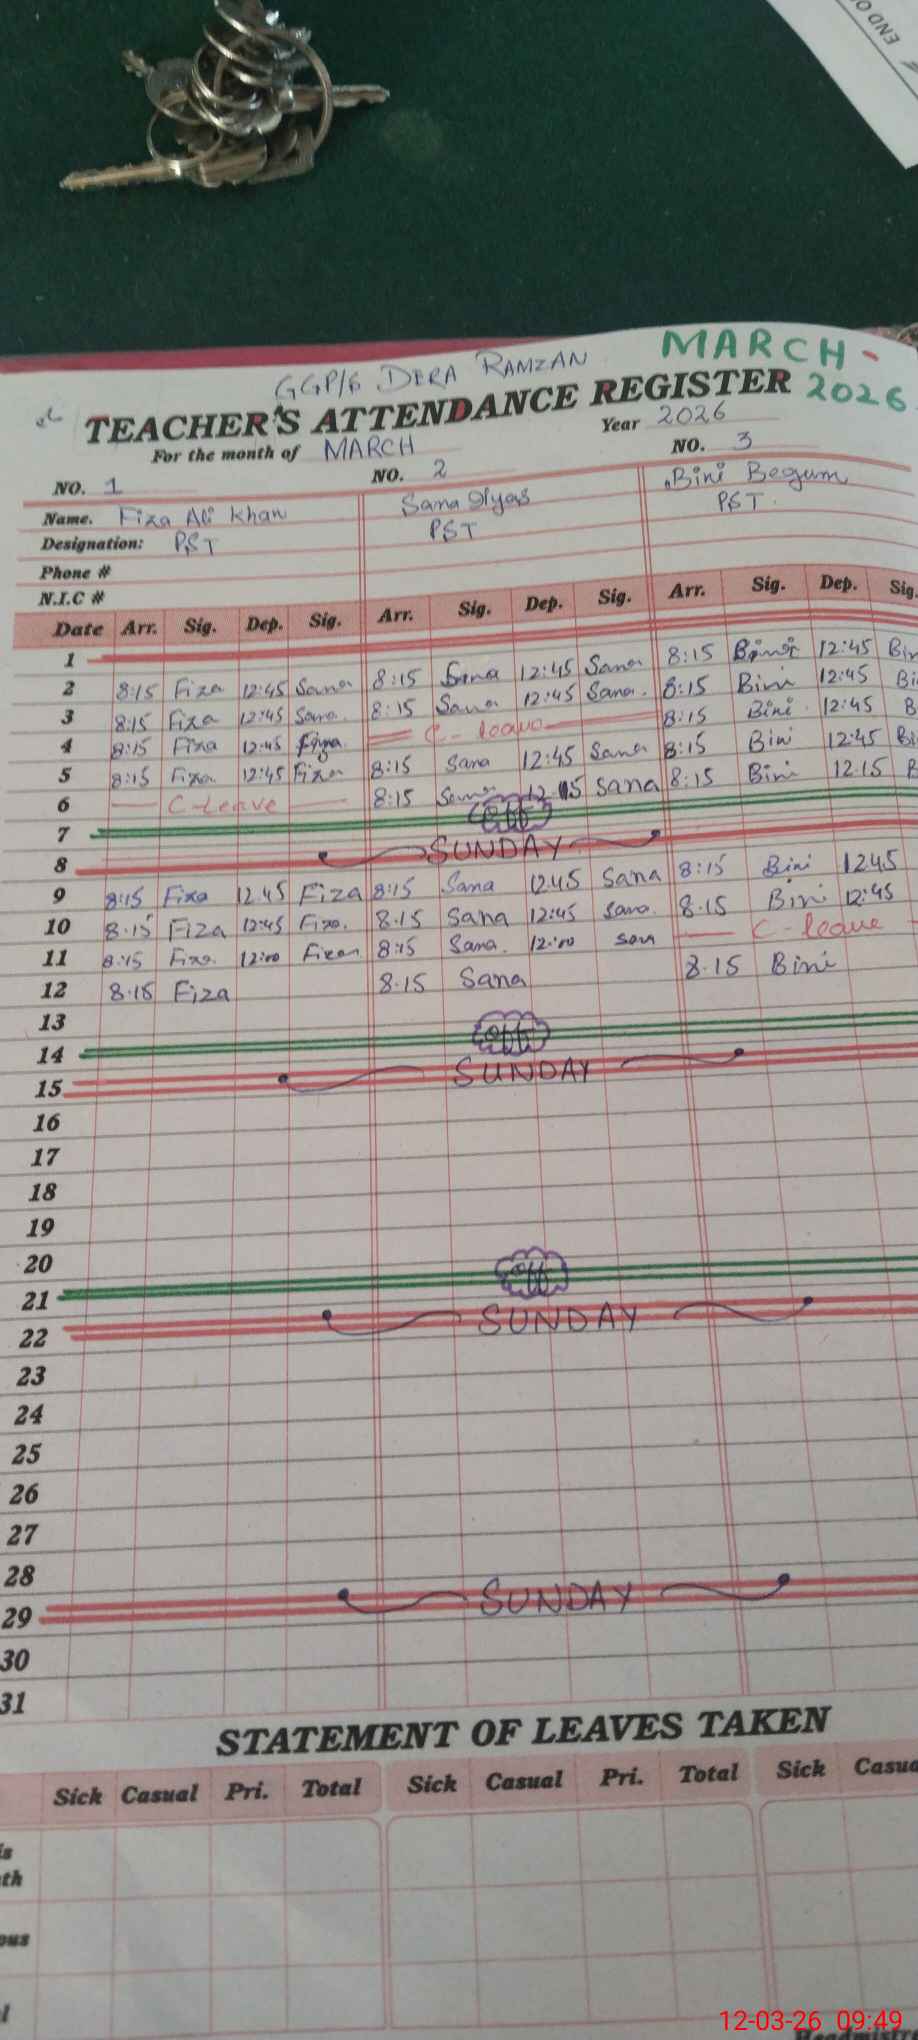 END O
MARCH - 2026
GGP/S DERA RAMZAN
TEACHER'S ATTENDANCE REGISTER
For the month of MARCH Year 2026
NO. 1 NO. 2 NO. 3
Name. Fiza Ali Khan Sana Ilyas Bini Begum
Designation: PST PST PST
Phone #
N.I.C #
Date Arr. Sig. Dep. Sig. Arr. Sig. Dep. Sig. Arr. Sig. Dep. Sig.
1
2 8:15 Fiza 12:45 Sana 8:15 Sana 12:45 Sana 8:15 Bini 12:45 Bin
3 8:15 Fiza 12:45 Sana 8:15 Sana 12:45 Sana. 8:15 Bini 12:45 Bi
4 8:15 Fiza 12:45 Fiza C-leave 8:15 Bini 12:45 B
5 8:15 Fiza 12:45 Fiza 8:15 Sana 12:45 Sana 8:15 Bini 12:45 Bi
6 C-Leave 8:15 Sana 12:15 Sana 8:15 Bini 12:15 B
7 off
8 SUNDAY
9 8:15 Fiza 12.45 Fiza 8:15 Sana 12:45 Sana 8:15 Bini 12:45
10 8.15 Fiza 12:45 Fiza. 8.15 Sana 12:45 Sana. 8.15 Bini 12:45
11 8:15 Fiza. 12:00 8:15 Sana. 12:00 San C-leave
12 8.15 Fiza 8.15 Sana 8.15 Bini
13
14 off
15 SUNDAY
16
17
18
19
20
21 off
22 SUNDAY
23
24
25
26
27
28
29 SUNDAY
30
31
STATEMENT OF LEAVES TAKEN
Sick Casual Pri. Total Sick Casual Pri. Total Sick Casua
is
th
ous
l
12-03-26 09:49